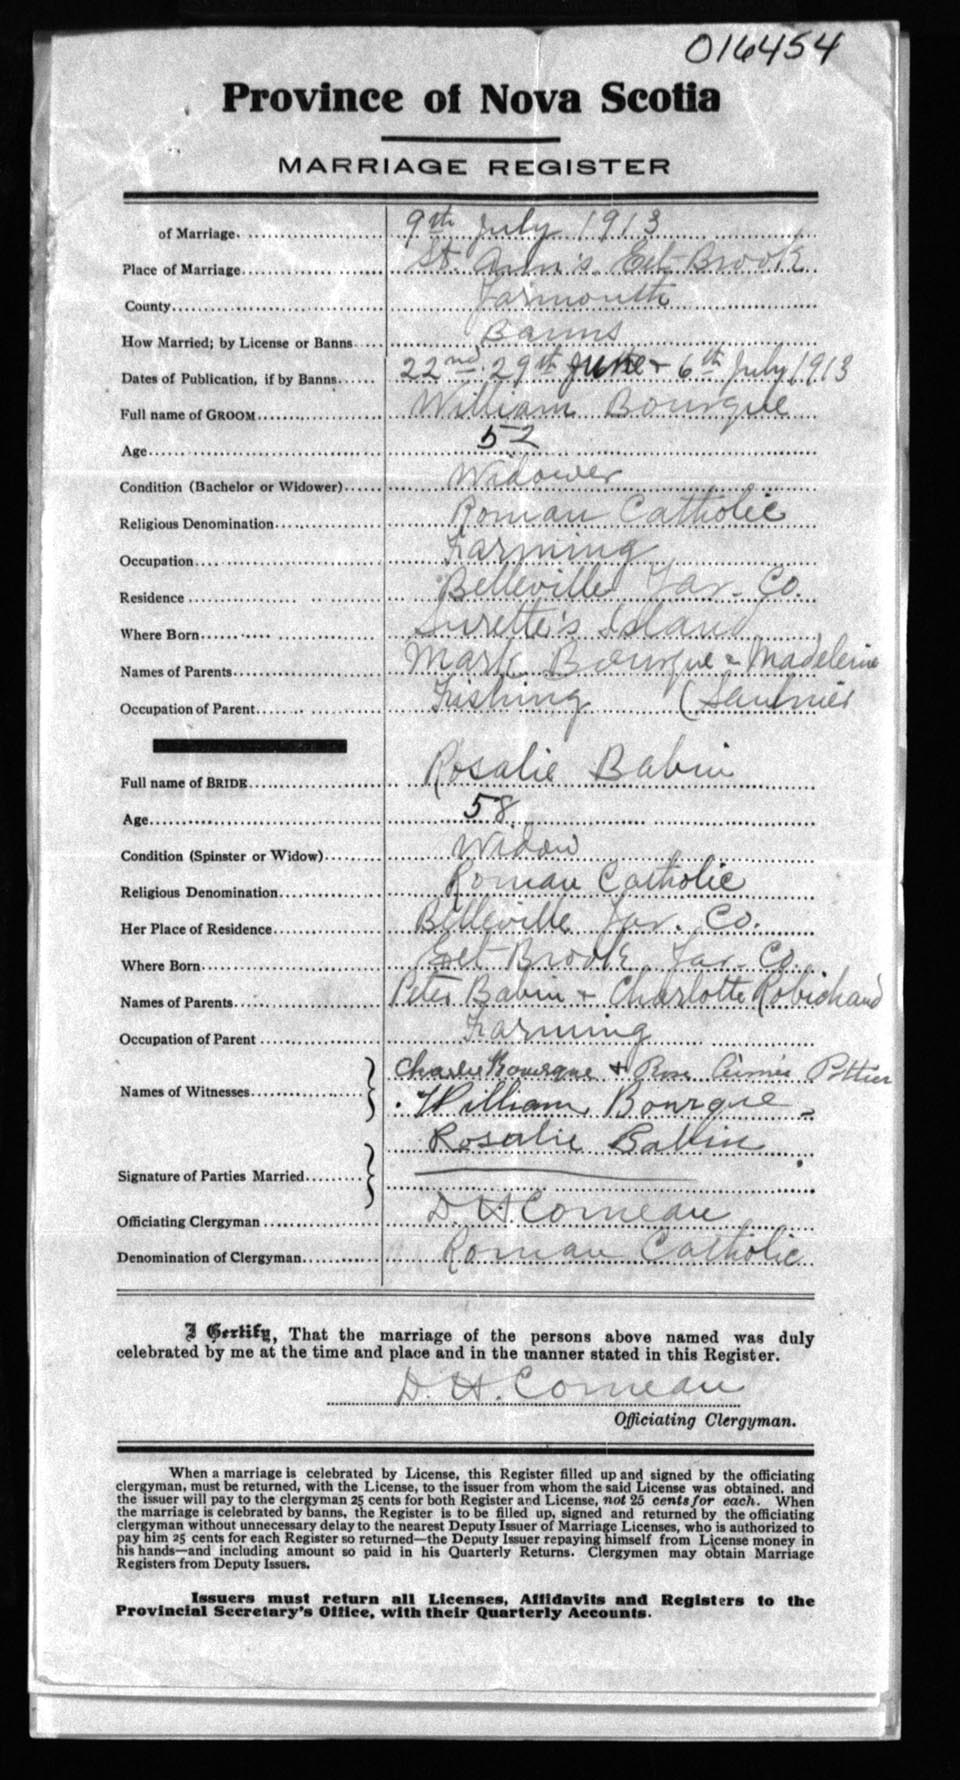 016454
Province of Nova Scotia
MARRIAGE REGISTER
of Marriage. 9th July 1913
Place of Marriage St. Ann's Eel-Brook
County Yarmouth
How Married; by License or Banns Banns
Dates of Publication, if by Banns 22nd. 29th June + 6th July 1913
Full name of GROOM William Bourque
Age 52
Condition (Bachelor or Widower) Widower
Religious Denomination Roman Catholic
Occupation Farming
Residence Belleville Yar. Co.
Where Born Surette's Island
Names of Parents Mark Bourque & Madeleine
Occupation of Parent Fishing (Saulnier
Full name of BRIDE Rosalie Babin
Age 58
Condition (Spinster or Widow) Widow
Religious Denomination Roman Catholic
Her Place of Residence Belleville Yar. Co.
Where Born Eel-Brook Yar. Co.
Names of Parents Peter Babin + Charlotte Robichaud
Occupation of Parent Farming
Names of Witnesses Charlie Bourque + Rose Aimée Pottier
William Bourque
Rosalie Babin
Signature of Parties Married
Officiating Clergyman D. H. Comeau
Denomination of Clergyman Roman Catholic
I Certify, That the marriage of the persons above named was duly
celebrated by me at the time and place and in the manner stated in this Register.
D. H. Comeau
Officiating Clergyman.
When a marriage is celebrated by License, this Register filled up and signed by the officiating
clergyman, must be returned, with the License, to the issuer from whom the said License was obtained, and
the issuer will pay to the clergyman 25 cents for both Register and License, not 25 cents for each. When
the marriage is celebrated by banns, the Register is to be filled up, signed and returned by the officiating
clergyman without unnecessary delay to the nearest Deputy Issuer of Marriage Licenses, who is authorized to
pay him 25 cents for each Register so returned—the Deputy Issuer repaying himself from License money in
his hands—and including amount so paid in his Quarterly Returns. Clergymen may obtain Marriage
Registers from Deputy Issuers.
Issuers must return all Licenses, Affidavits and Registers to the
Provincial Secretary's Office, with their Quarterly Accounts.